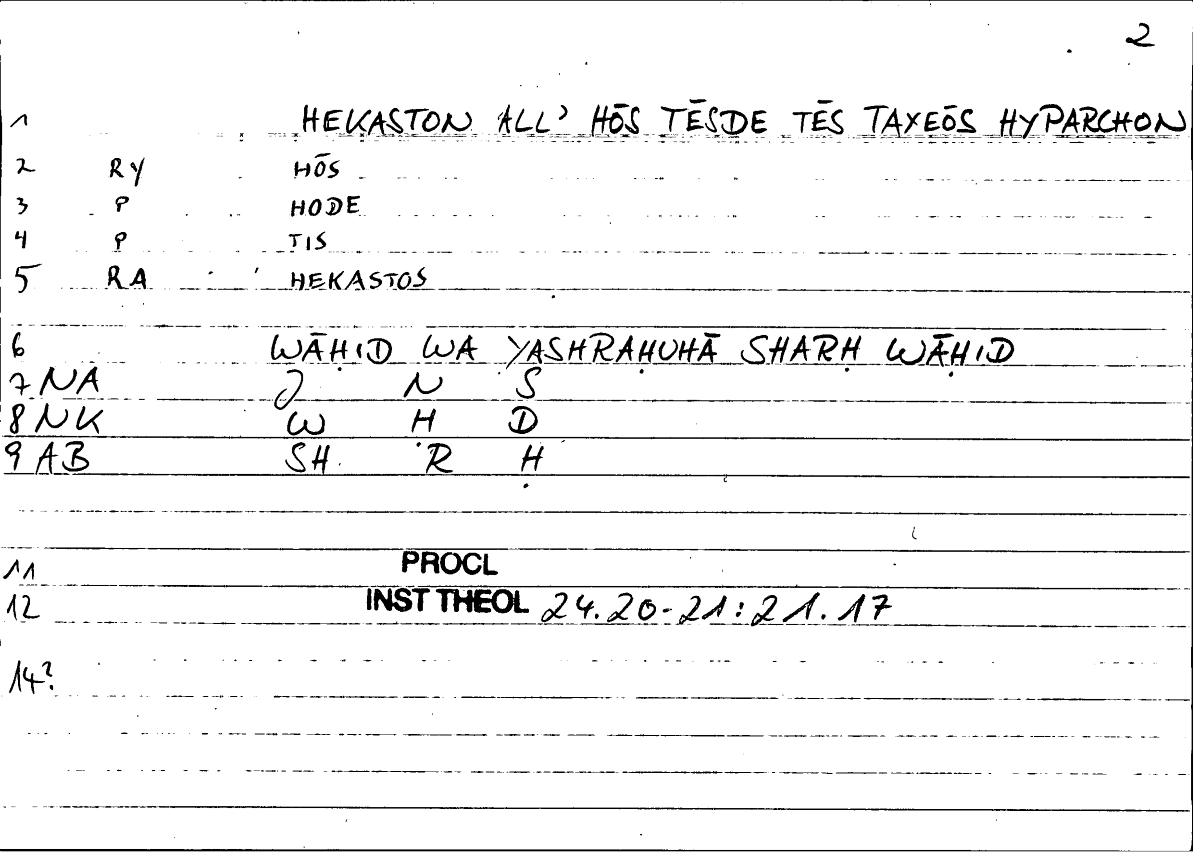 2
1 HEKASTON ALL' HŌS TĒSDE TĒS TAXEŌS HYPARCHON
2 RY HŌS
3 P HODE
4 P TIS
5 RA HEKASTOS
6 WĀḤID WA YASHRAḤUHĀ SHARḤ WĀḤID
7 NA J N S
8 NK W H D
9 AB SH R Ḥ
11 PROCL
12 INST THEOL 24.20-21:21.17
14?